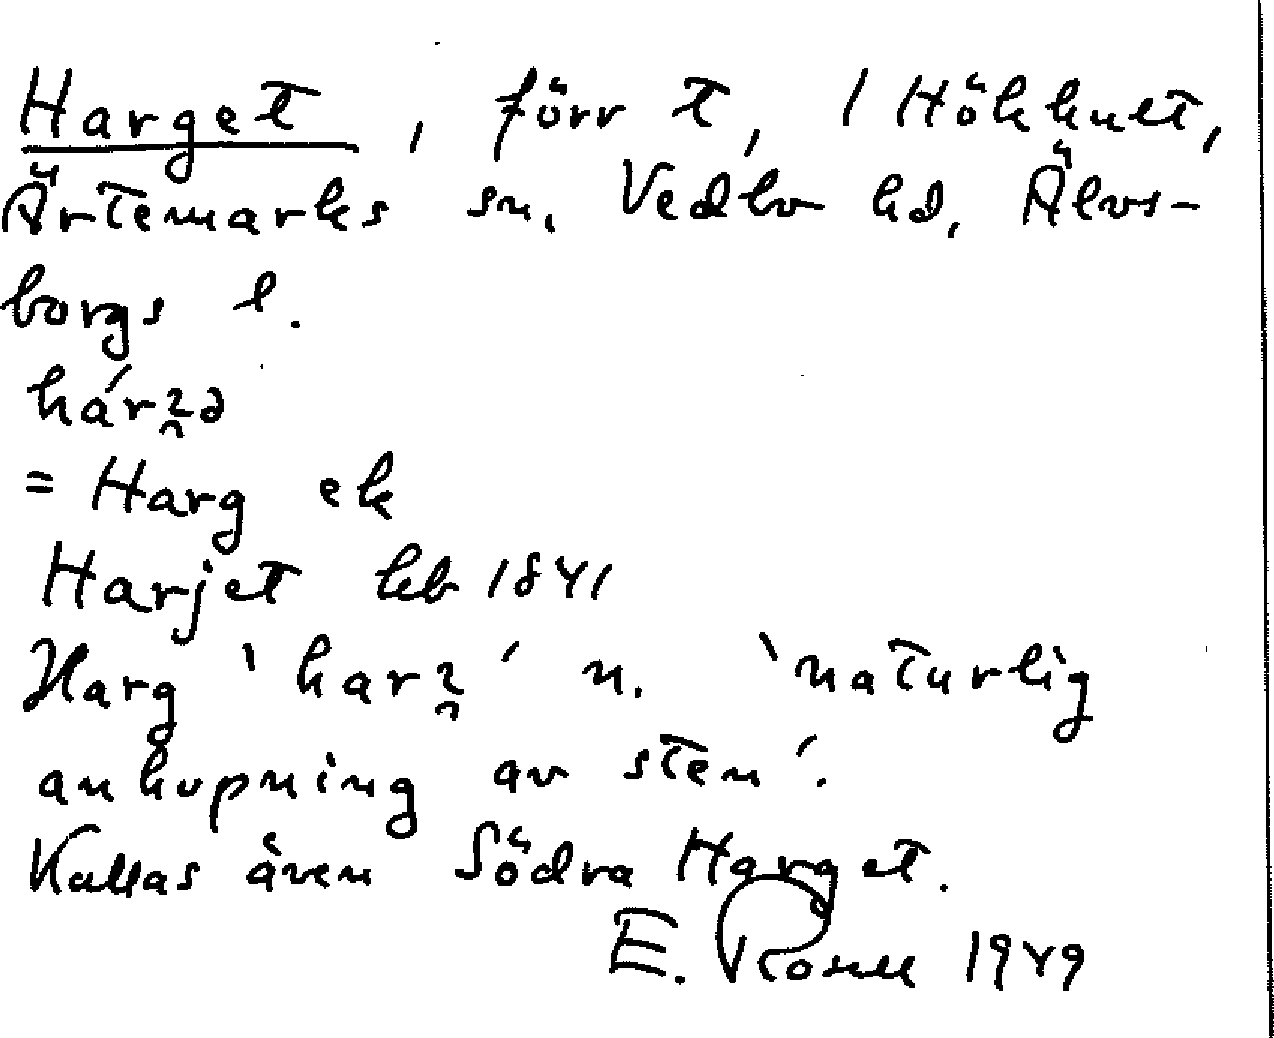 Harget, förr t, 1 Hökhult,
Ärtemarks sn. Vedbo hd, Älvs-
borgs l.
= Harg ek
Harjet leb 1841
Harg n. 'naturlig
anhopning av sten'.
Kallas även Södra Harget.
E. 1949